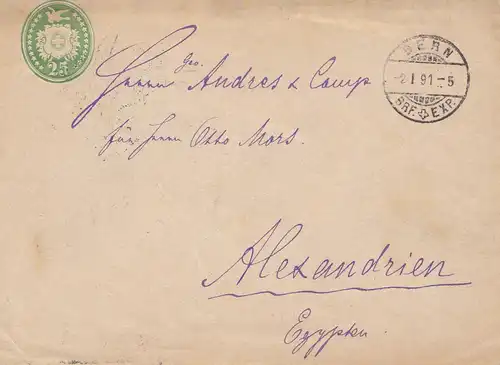 25
BERN
-2. I 91.-5
BRF. EXP.
Geo.
Herrn Andres & Comp
für Herrn Otto Mors.
Alexandrien
Egypten.